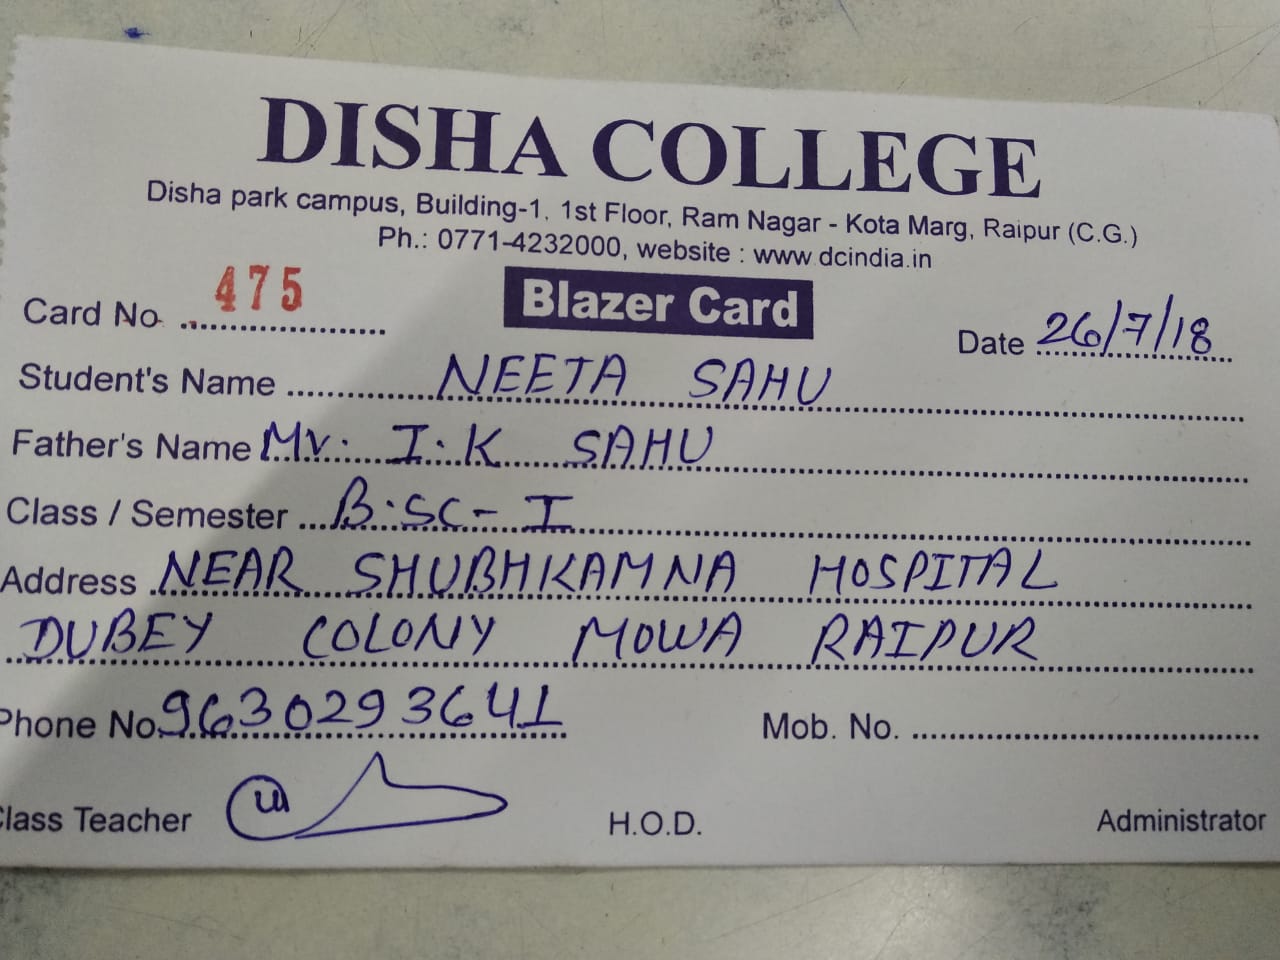 DISHA COLLEGE
Disha park campus, Building-1, 1st Floor, Ram Nagar - Kota Marg, Raipur (C.G.)
Ph.: 0771-4232000, website : www.dcindia.in
Card No. 475 Blazer Card Date 26/7/18
Student's Name NEETA SAHU
Father's Name Mr. I.K SAHU
Class / Semester B.SC- I
Address NEAR SHUBHKAMNA HOSPITAL
DUBEY COLONY MOWA RAIPUR
Phone No. 9630293641 Mob. No.
Class Teacher H.O.D. Administrator